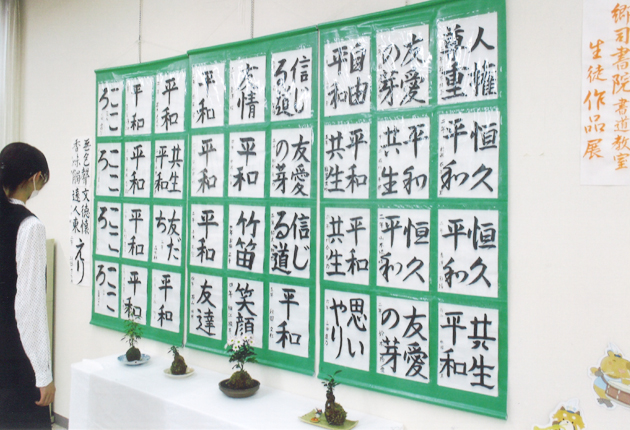 郷司書院書道教室
生徒作品展
人権
尊重
友愛
の芽
自由
平和
恒久
平和
平和
共生
平和
共生
恒久
平和
恒久
平和
平和
共生
共生
平和
友愛
の芽
思い
やり
信じ
る道
友情
平和
友愛
の芽
平和
平和
信じ
る道
竹笛
平和
平和
笑顔
友達
平和
平和
こころ
共生
平和
平和
こころ
友だ
ち
平和
こころ
平和
平和
こころ
えり